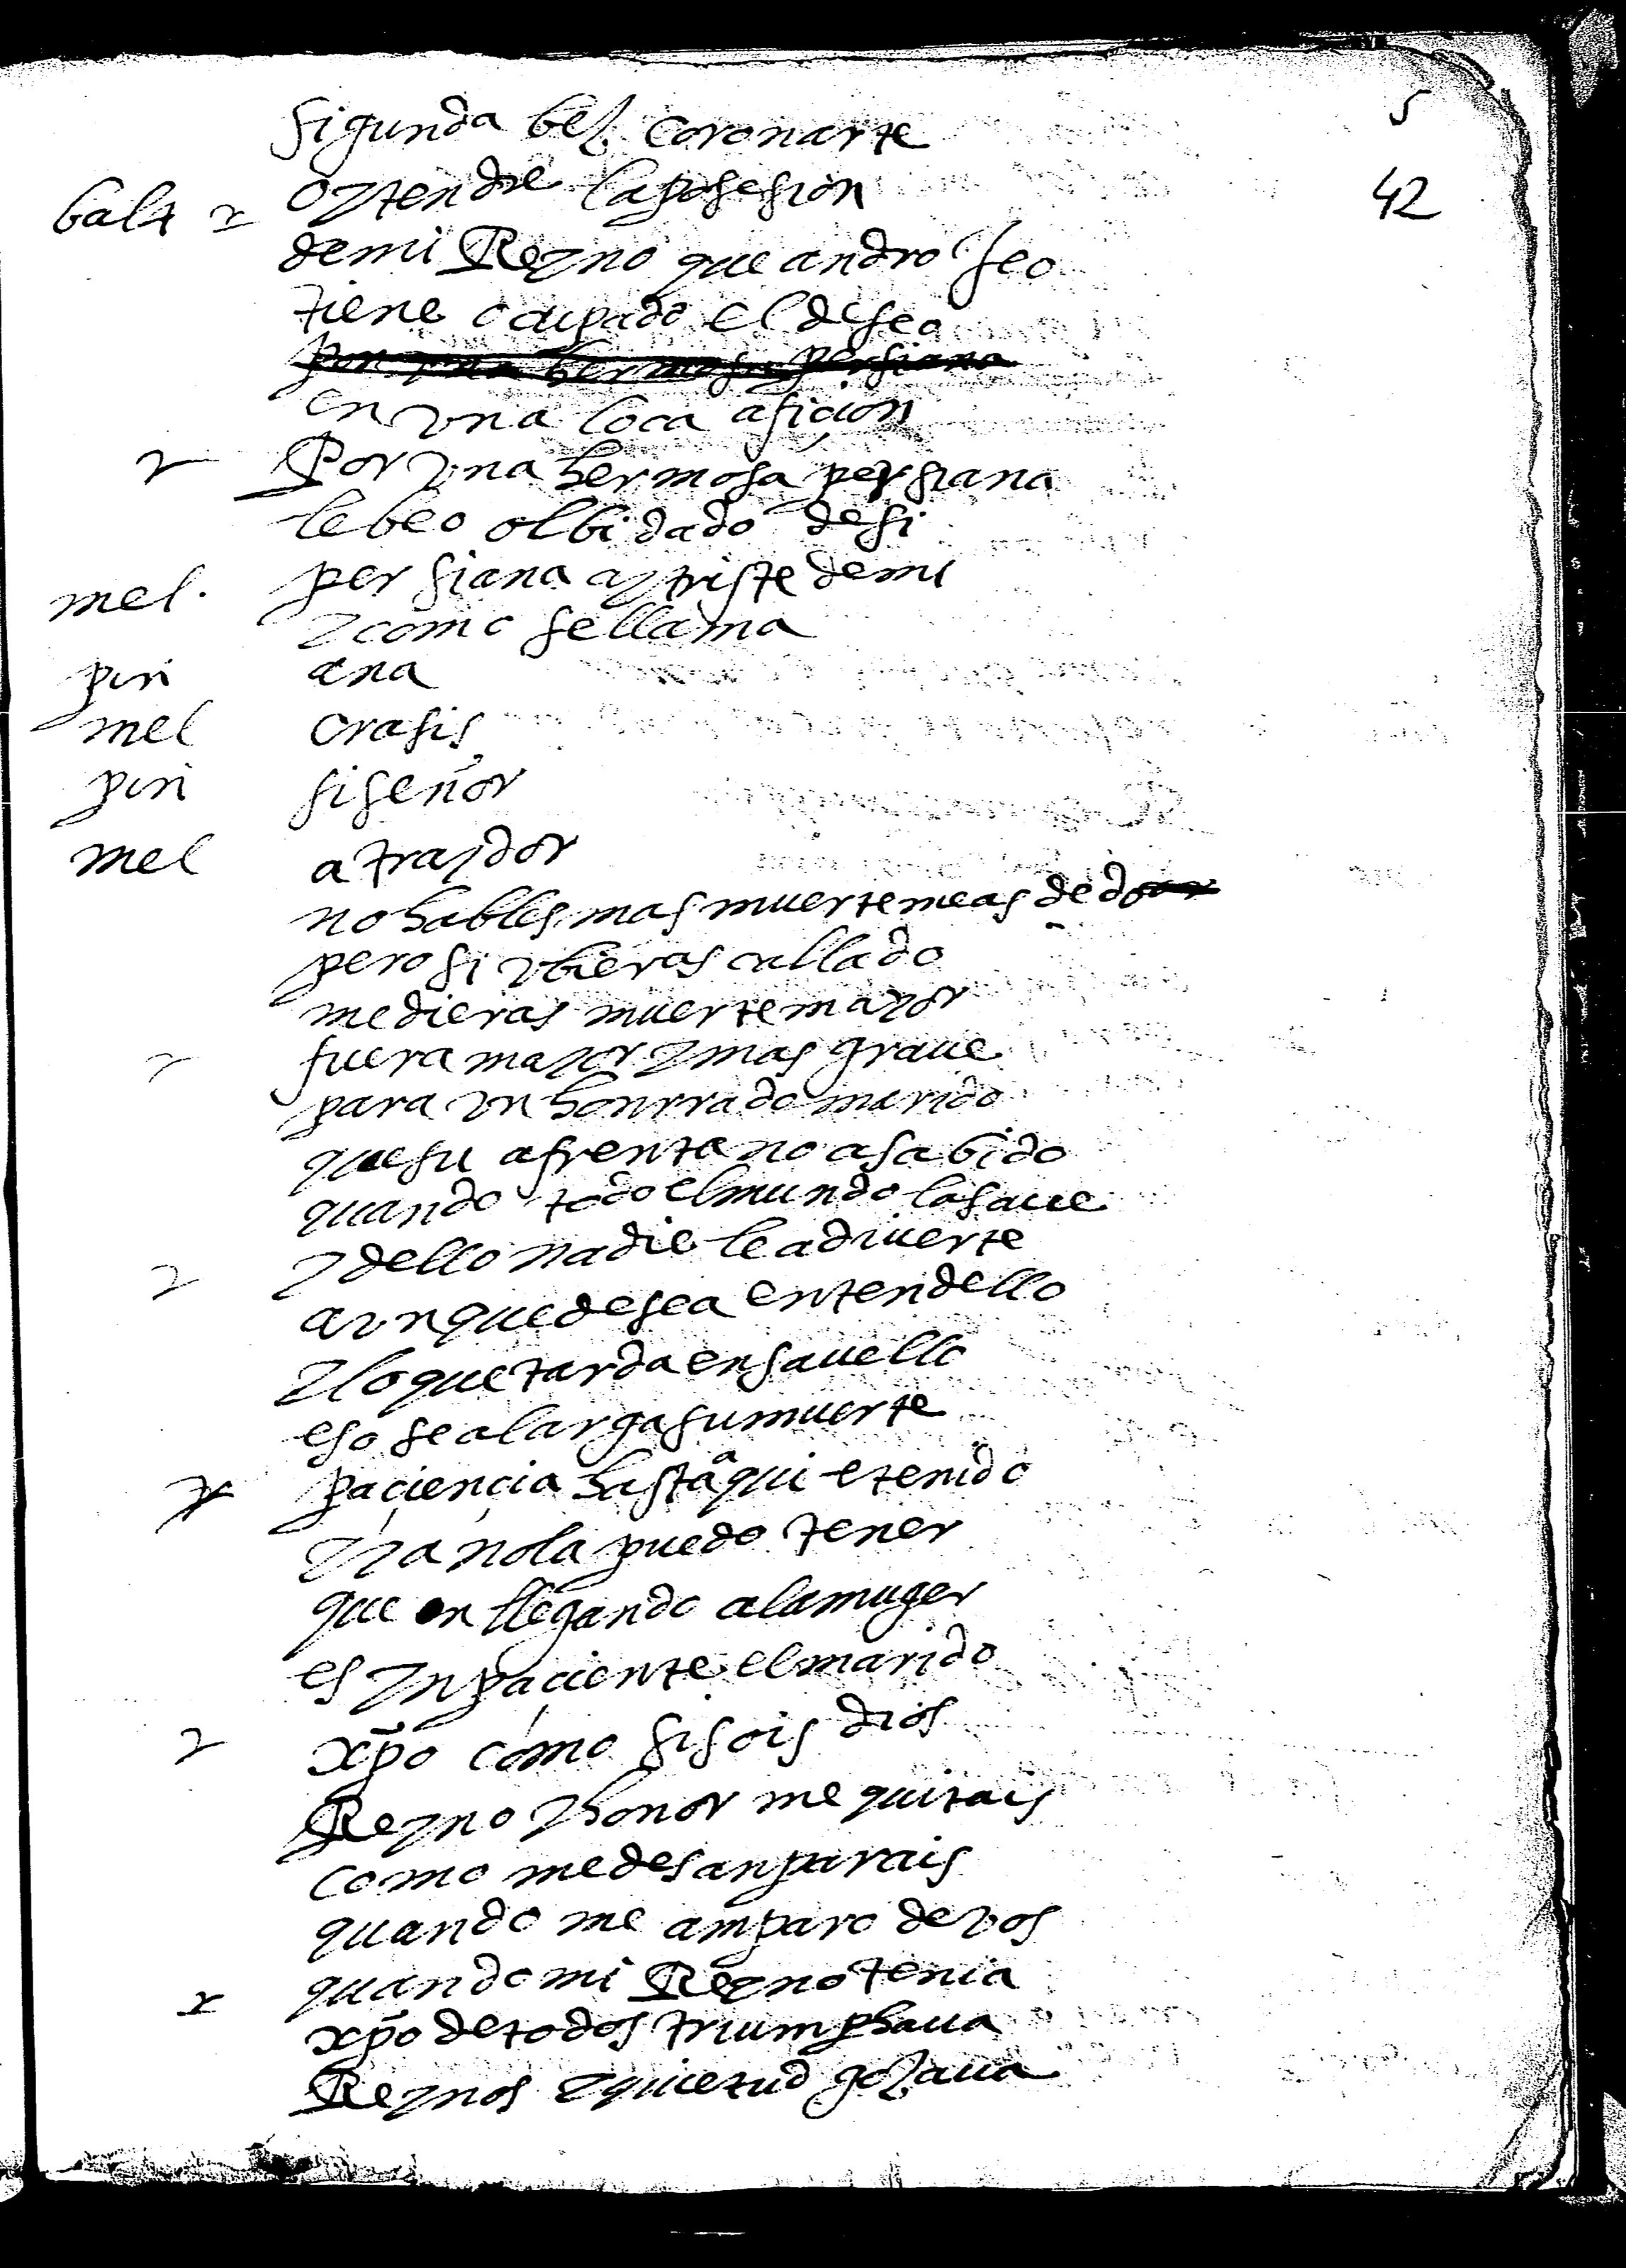 5
sigunda bez coronarte
42
balt oy tendre la posesion
de mi Reyno que androfeo
tiene ocupado el deseo
por vna hermosa persiana
en vna loca aficion
Por vna hermosa persiana
le beo olbidado de si
mel. persiana ay triste de mi
y como se llama
pin ana
mel orasis
pin si señor
mel a traydor
no hables mas muerte me as dedo
pero si vbieras callado
me dieras muerte mayor
fuera mayor y mas graue
para vn honrrado marido
que su afrenta no a sabido
quando todo el mundo la saue
y dello nadie le aduierte
avnque desea entendello
y lo que tarda en sauello
eso se alarga su muerte
paciencia hasta aqui e tenido
y ya no la puedo tener
que en llegando a la muger
es ynpaciente el marido
xp̄o como si sois dios
Reyno y honor me quitais
como me desanparais
quando me amparo de vos
quando mi Reyno tenia
xp̄o de todos triumphaua
Reynos y quietud gozaua